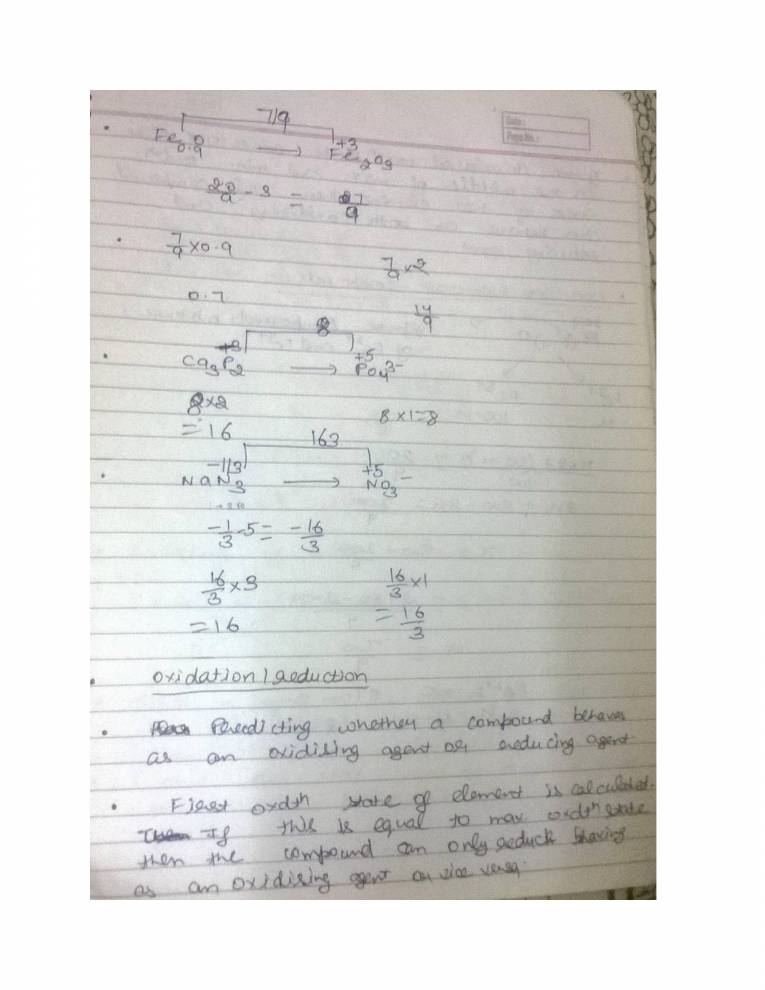 Date :
Page No. :
7/9
+3
Fe0.9O → Fe2O3
20/9 - 3 = 27/9
7/9 × 0.9
7/9 × 2
0.7
14/9
8
+3 +5
Ca3P2 → PO4 3-
8×2
8×1=8
= 16
163
-1/3 +5
NaN3 → NO3-
-1/3 - 5 = -16/3
16/3 × 3
16/3 × 1
= 16
= 16/3
Oxidation / Reduction
Predicting whether a compound behaves
as an oxidising agent or reducing agent
First oxdth state of element is calculated.
If this is equal to max oxdth state
then the compound can only reduck
as an oxidising agent or vice versa.